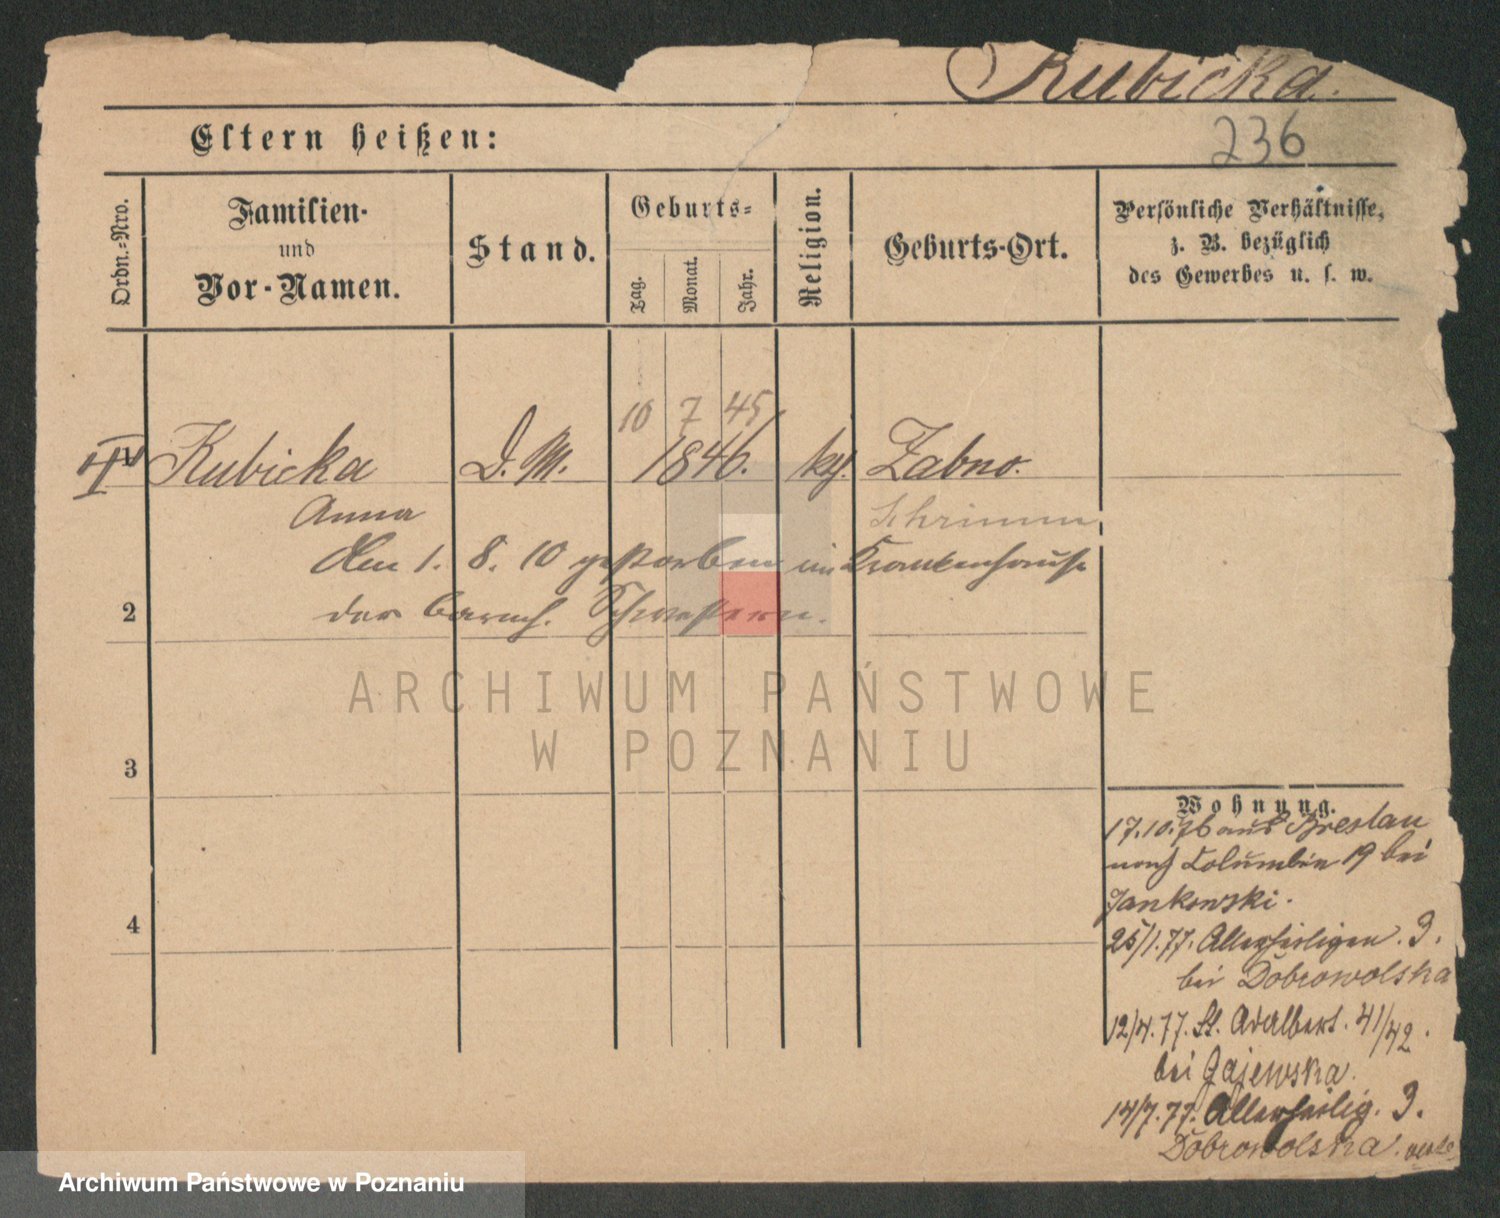 Kubicka.
Eltern heißen:
236
Ordn.-Nro.
Familien-
und
Vor-Namen.
Stand.
Geburts-
Tag.
Monat.
Jahr.
Religion.
Geburts-Ort.
Persönliche Verhältnisse,
z. B. bezüglich
des Gewerbes u. s. w.
10 7 45
Kubicka D. M. 1846. kg. Zabno.
Anna Schrimm
den 1. 8. 10 gestorben im Krankenhause
2 der barmh. Schwestern.
ARCHIWUM PAŃSTWOWE
W POZNANIU
3
4
Wohnung.
17.10.76 aus Breslau
nach Columbia 19 bei
Jankowski.
25/1.77. Allerheiligen. 3.
bei Dobrowolska
12/4.77. St. Adalbert. 41/42.
bei Gajewska.
14/7.77. Allerheilig. 3.
Dobrowolska.
Archiwum Państwowe w Poznaniu